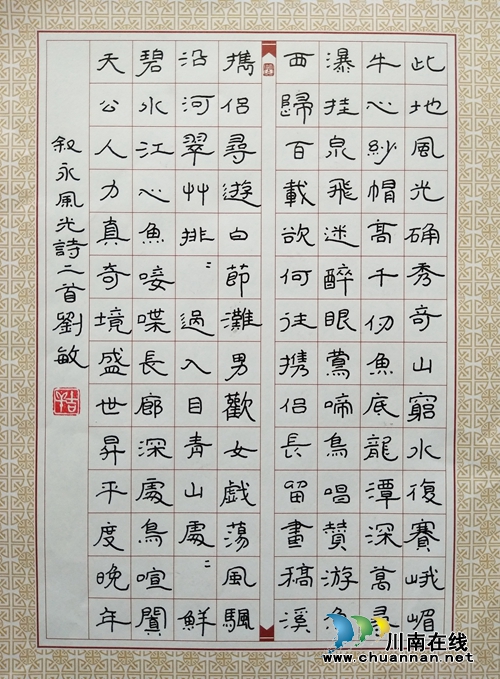 此地風光确秀奇山窮水復賽峨嵋
牛心紗帽高千仞魚底龍潭深萬尋
瀑挂泉飛迷醉眼鶯啼鳥唱贊游
西歸百載欲何往携侣長留畫稿溪
攜侣尋遊白節灘男歡女戲蕩風颿
沿河翠艸排〻過入目青山處〻鮮
碧水江心魚唼喋長廊深處鳥喧闐
天公人力真奇境盛世昇平度晚年
叙永風光詩二首劉敏
川南在线
www.chuannan.net